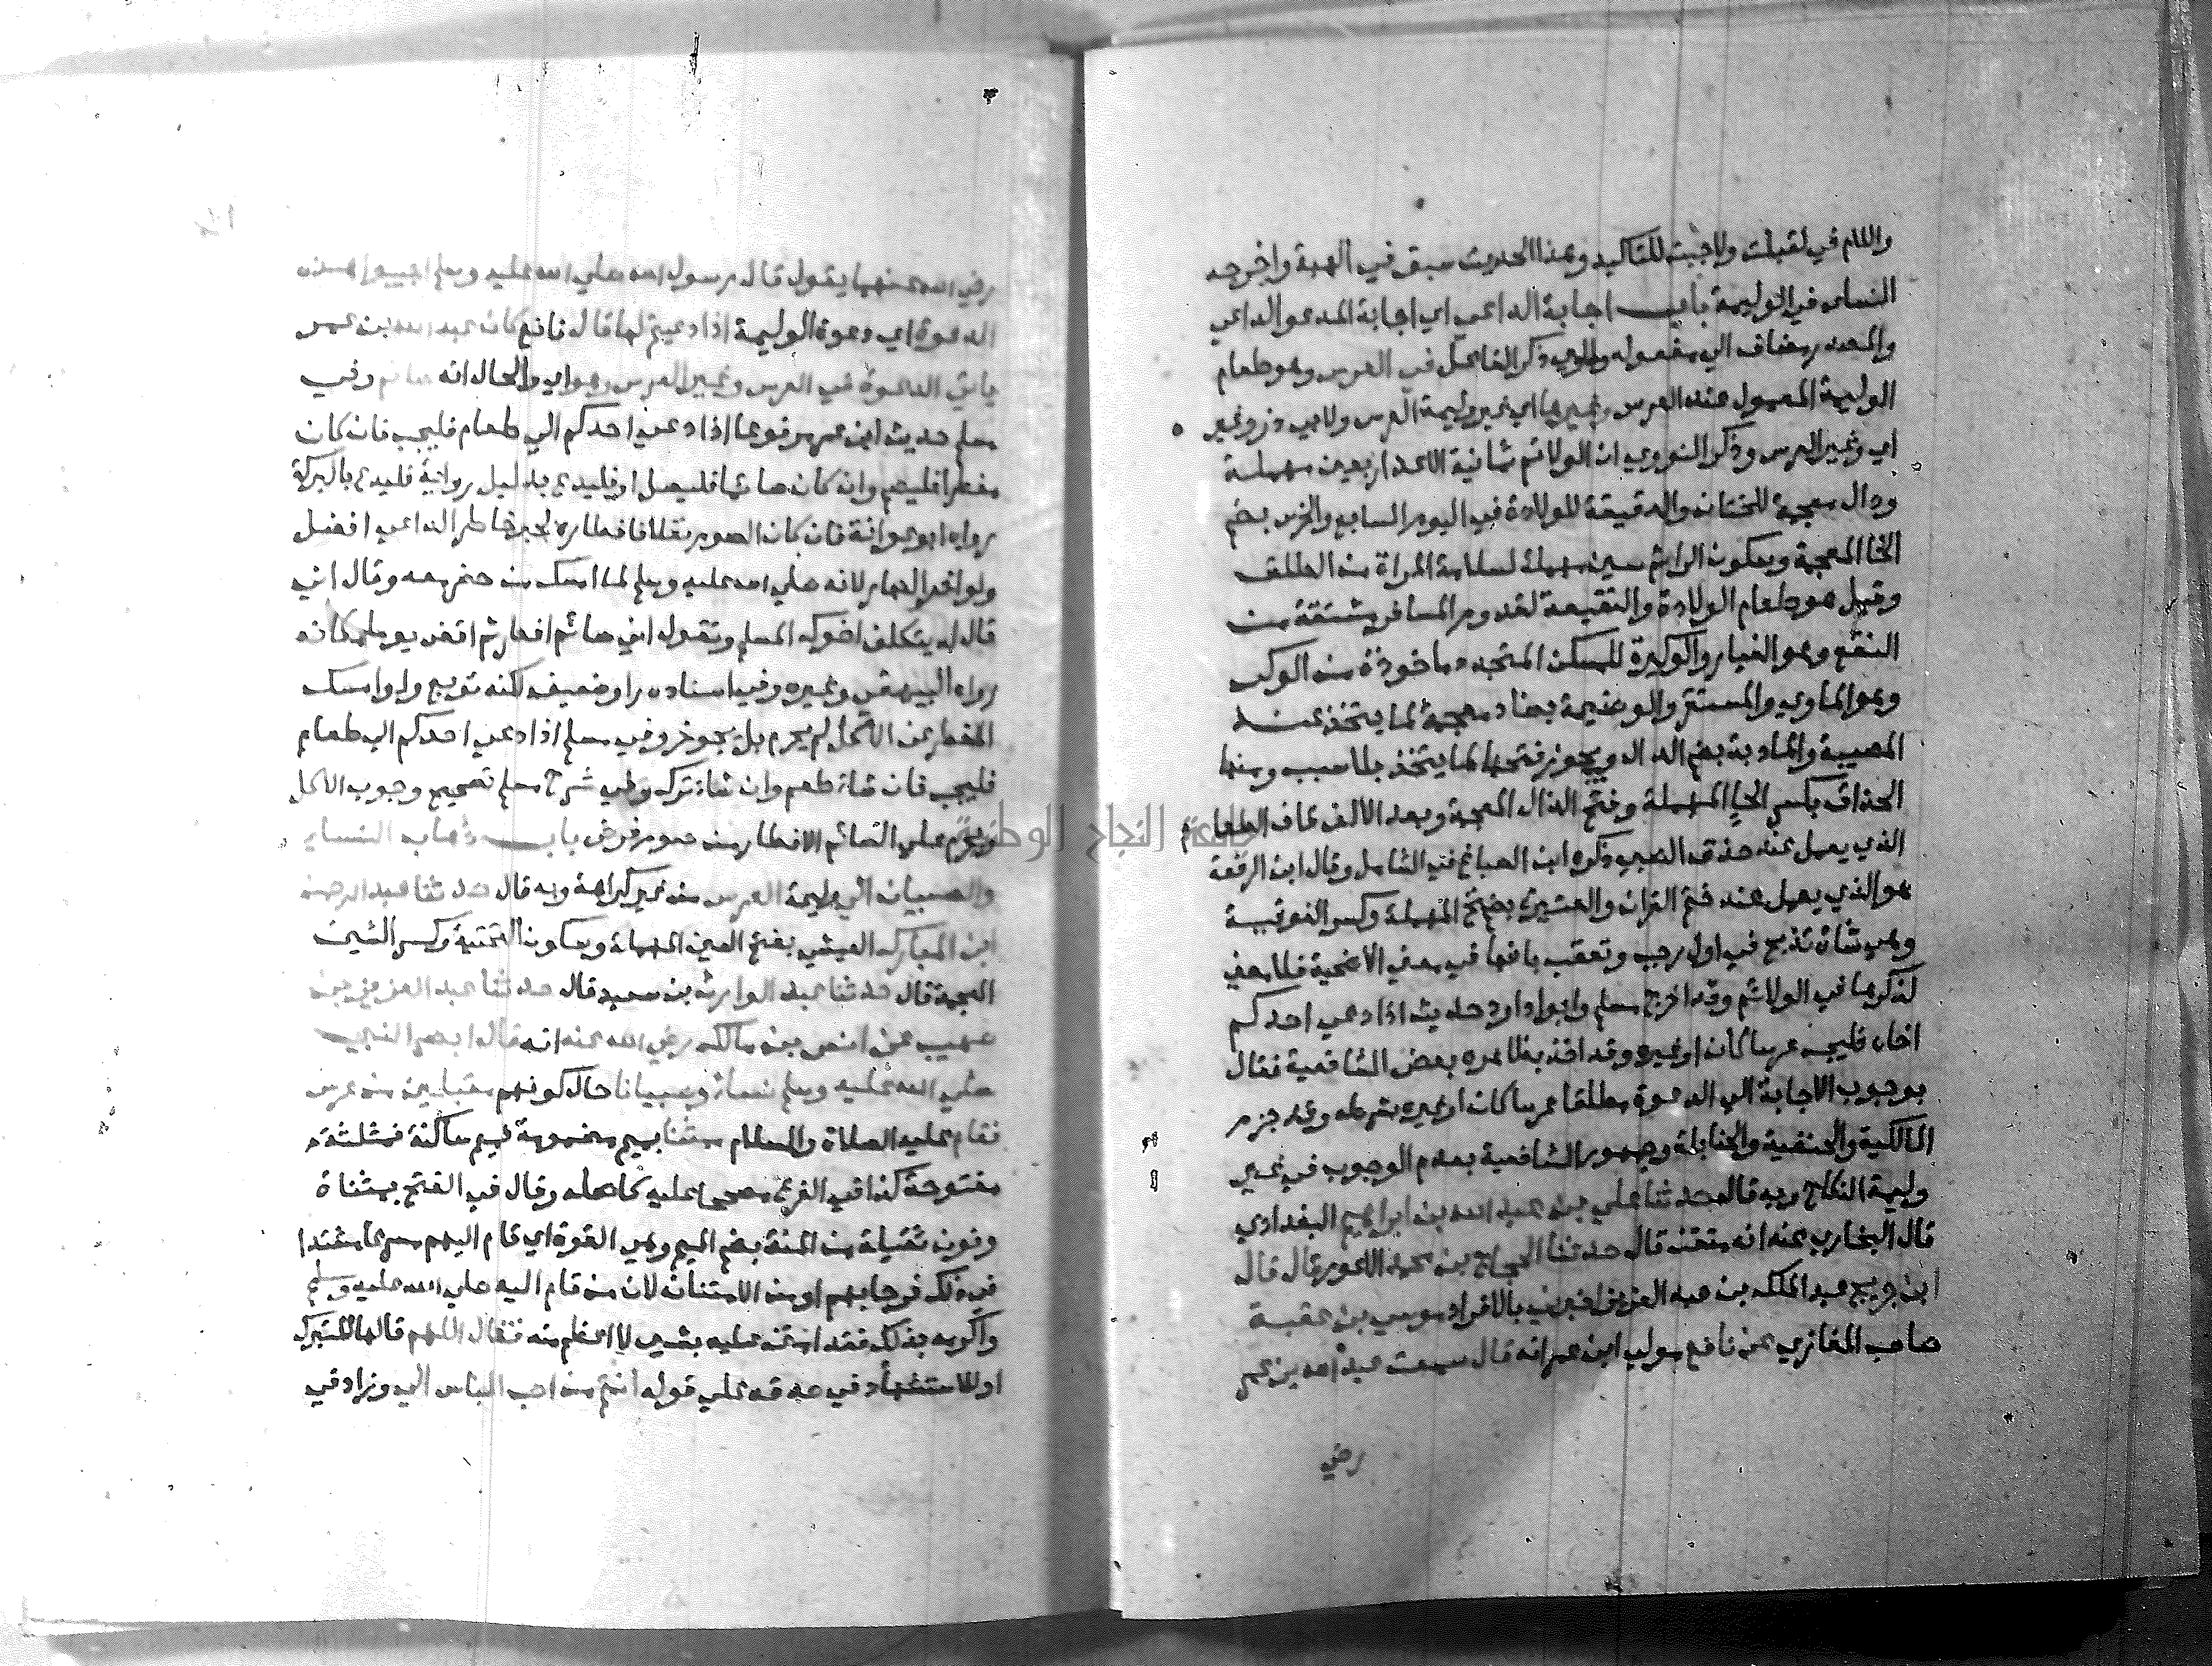 واللام في لقبلت ولاجبت للتاكيد وهذا الحديث سبق في الهبة واخرجه
النساى في الوليمة باب اجابة الداعي اي اجابة المدعو الداعي
والمصدر مضاف الى مفعوله وطوي ذكر الفاعل في العرس وهو طعام
الوليمة المعمول عند العرس وغيرها اي غير وليمة العرس ولابي ذر وغير
اي وغير العرس وذكر النووي ان الولائم ثمانية الاعذار بعين مهملة
وذال معجمة للختان والعقيقة للولادة في اليوم السابع والخرس بضم
الخا المعجمة وسكون الرا ثم سين مهملة لسلامة المراة من الطلق
وقيل هو طعام الولادة والنقيعة لقدوم المسافر مشتقة من
النقع وهو الغبار والوكيرة للمسكن المتجدد ماخوذة من الوكر
وهو الماوي والمستقر والوضيمة بضاد معجمة لما يتخذ عند
المصيبة والمادبة بضم الدال ويجوز فتحها لما يتخذ بلا سبب ومنها
الحذاق بكسر الحا المهملة وفتح الذال المعجمة وبعد الالف قاف الطعام
الذي يعمل عند حذق الصبي ذكره ابن الصباغ في الشامل وقال ابن الرفعة
هو الذي يعمل عند ختم القران والعتيرة بفتح المهملة وكسر الفوقية
وهي شاة تذبح في اول رجب وتعقب بانها في معنى الاضحية فلا معنى
لذكرها في الولائم وقد اخرج مسلم وابو داود حديث اذا دعي احدكم
اخاه فليجب عرسا كان او غيره وقد اخذ بظاهره بعض الشافعية فقال
بوجوب الاجابة الى الدعوة مطلقا عرسا كان او غيره بشرطه وقد جزم
المالكية والحنفية والحنابلة وجمهور الشافعية بعدم الوجوب في غير
وليمة النكاح وبه قال حدثنا علي بن عبد الله بن ابراهيم البغدادي
قال البخاري عنه انه متقن قال حدثنا الحجاج بن محمد الاعور قال قال
ابن جريج عبد الملك بن عبد العزيز اخبرني بالافراد موسي بن عقبة
صاحب المغازي عن نافع مولي ابن عمر انه قال سمعت عبد الله بن عمر
رضي
رضي الله عنهما يقول قال رسول الله صلي الله عليه وسلم اجيبوا هذه
الدعوة اي دعوة الوليمة اذا دعيتم لها قال نافع كان عبد الله بن عمر
ياتي الدعوة في العرس وغير العرس وهو اي والحال انه صائم وفي
مسلم حديث ابن عمر مرفوعا اذا دعي احدكم الي طعام فليجب فان كان
مفطرا فليطعم وان كان صائما فليصل اي فليدع بدليل رواية فليدع بالبركة
رواه ابو عوانة فان كان الصوم نفلا فافطاره لجبر خاطر الداعي افضل
ولو اخر النهار لانه صلي الله عليه وسلم لما امسك من حضر معه وقال اني
قال له يتكلف اخوك المسلم وتقول اني صائم افطر ثم اقض يوما مكانه
رواه البيهقي وغيره وفي اسناده راو ضعيف لكنه توبع ولو امسك
المفطر عن الاكل لم يحرم بل يجوز وفي مسلم اذا دعي احدكم الي طعام
فليجب فان شاء طعم وان شاء ترك وفي شرح مسلم تصحيح وجوب الاكل
ويحرم علي الصائم الافطار من صوم فرض باب ذهاب النساء
والصبيان الي وليمة العرس من غير كراهة وبه قال حدثنا عبد الرحمن
ابن المبارك العيشي بفتح العين المهملة وسكون التحتية وكسر الشين
المعجمة قال حدثنا عبد الوارث بن سعيد قال حدثنا عبد العزيز بن
صهيب عن انس بن مالك رضي الله عنه انه قال ابصر النبي
صلي الله عليه وسلم نساء وصبيانا حال كونهم مقبلين من عرس
فقام عليه الصلاة والسلام ممتنا بميم مضمومة فميم ساكنة فمثلثة
مفتوحة كذا في الفرع مصححا عليه كاصله وقال في الفتح بمثناة
ونون ثقيلة من المنة بضم الميم وهي القوة اي قام اليهم مسرعا مشتدا
في ذلك فرحا بهم او من الامتنان لان من قام اليه صلي الله عليه وسلم
واكرمه بذلك فقد امتن عليه بشي لا اعظم منه فقال اللهم قالها للتبرك
او للاستشهاد في صدقه علي قوله انتم من احب الناس الي وزاد في
جامعة النجاح الوطنية